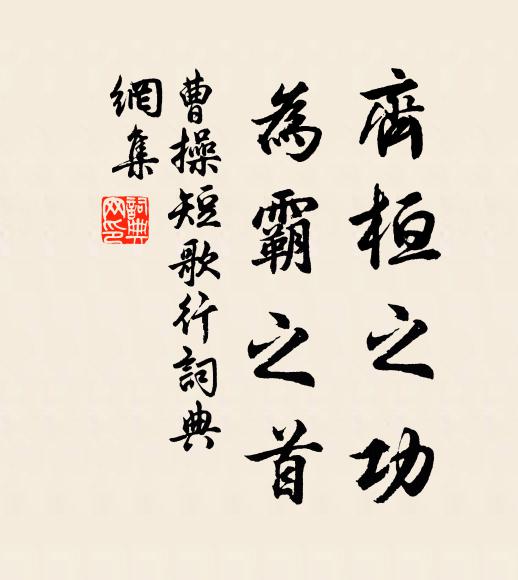 齊桓之功
為霸之首
曹操短歌行詞典
網集
詞典
网印